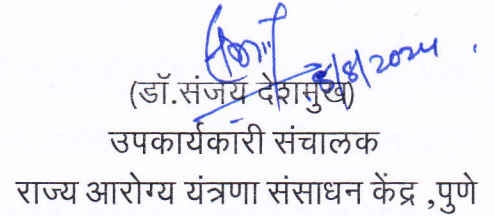 8/8/2024
(डॉ.संजय देशमुख)
उपकार्यकारी संचालक
राज्य आरोग्य यंत्रणा संसाधन केंद्र ,पुणे